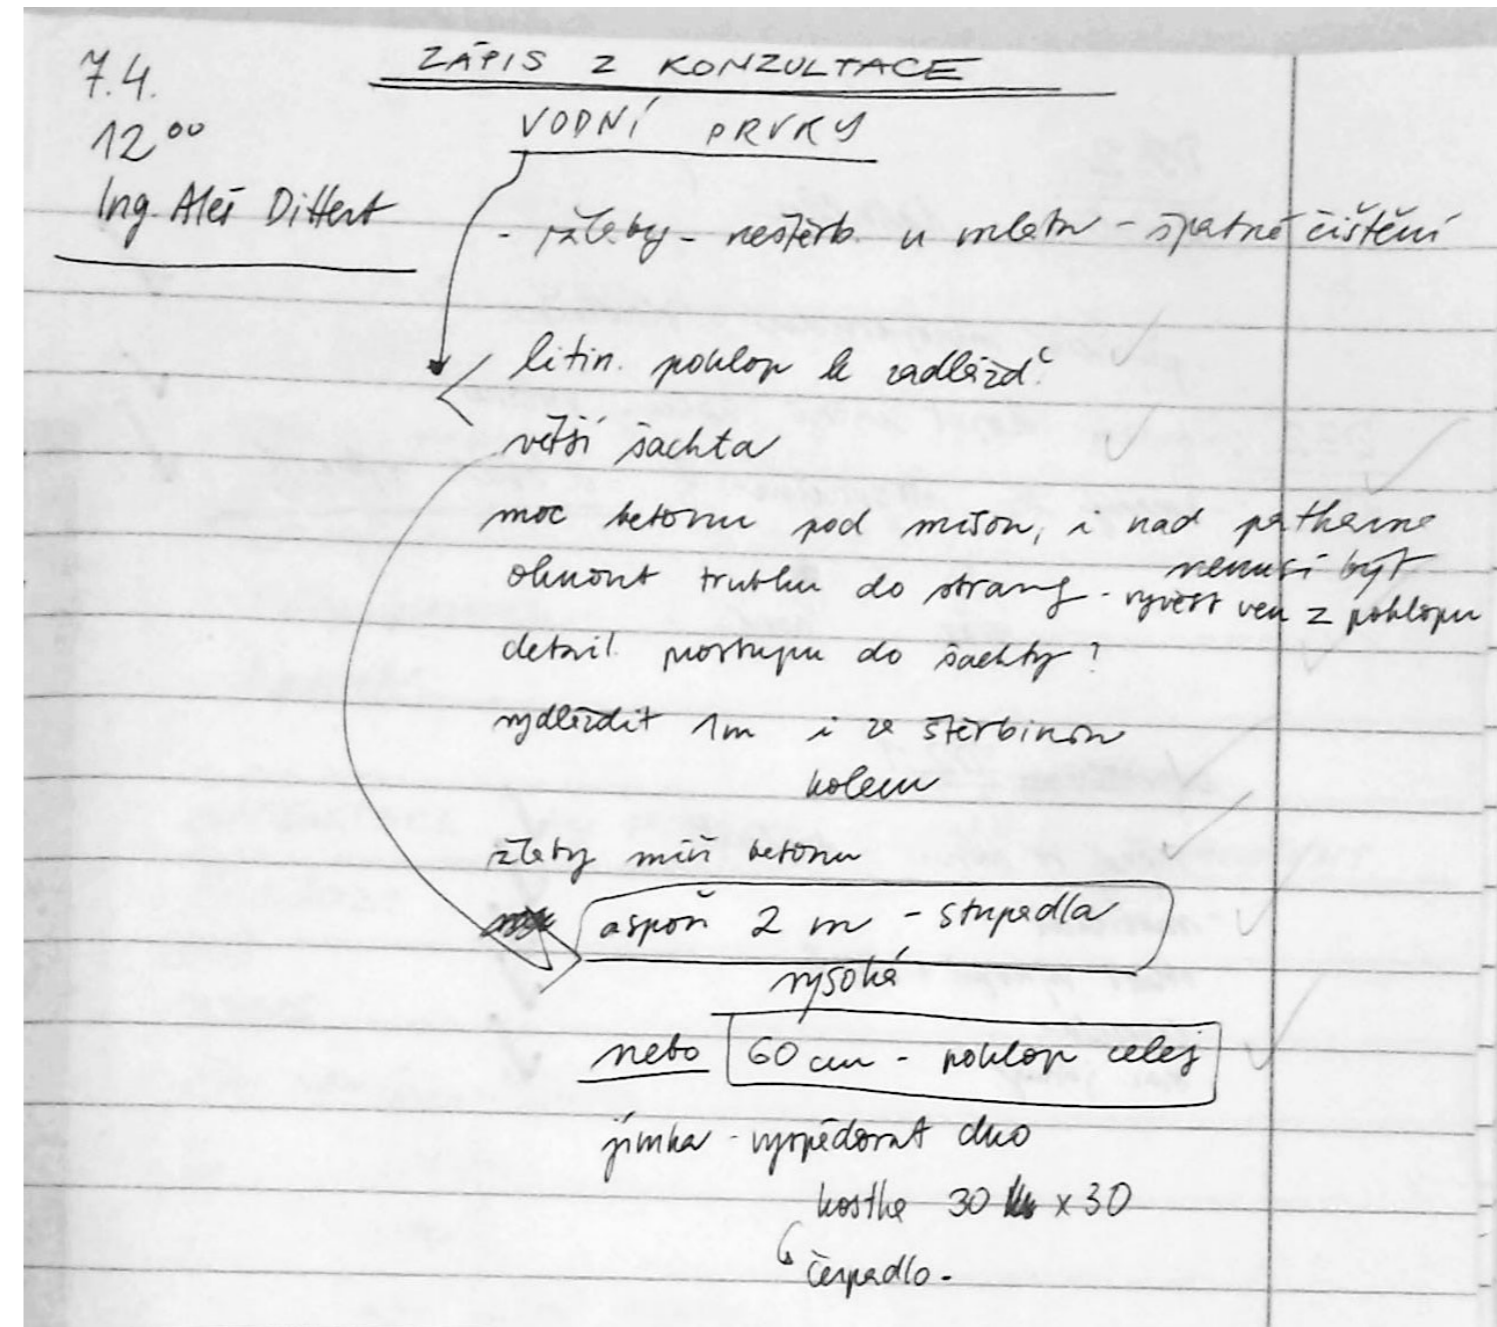 7.4.
12⁰⁰
Ing. Aleš Dittert
ZÁPIS Z KONZULTACE
VODNÍ PRVKY
- žlaby - neštěrb. u mlatu - špatné čištění
litin. poklop k zadlážď.
větší šachta
moc betonu pod mísou, i nad patkame
ohnout trubku do strany - nemusí být
vyvést ven z poklopu
detail. prostupu do šachty?
vydláždit 1m i za štěrbinou
kolem
žlaby míň betonu
aspoň 2 m - stupadla
vysoká
nebo 60 cm - poklop celej
jímka - vyspádovat dno
kostka 30 x 30
čerpadlo -